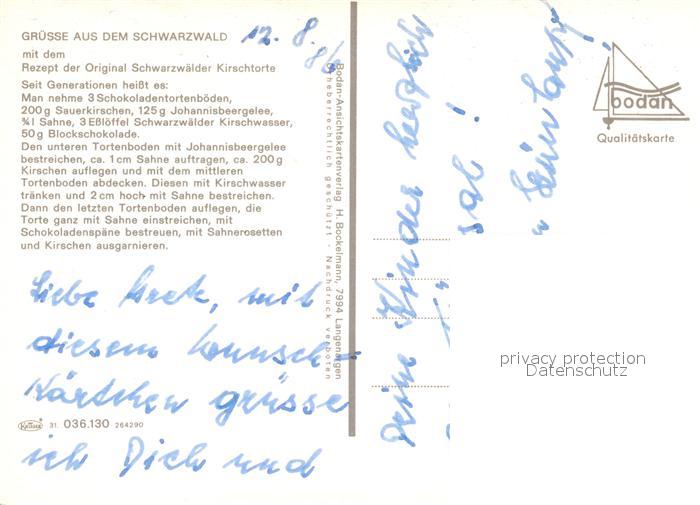 GRÜSSE AUS DEM SCHWARZWALD
12. 8.
mit dem
Rezept der Original Schwarzwälder Kirschtorte
Seit Generationen heißt es:
Man nehme 3 Schokoladentortenböden,
200 g Sauerkirschen, 125 g Johannisbeergelee,
¾ l Sahne, 3 Eßlöffel Schwarzwälder Kirschwasser,
50 g Blockschokolade.
Den unteren Tortenboden mit Johannisbeergelee
bestreichen, ca. 1 cm Sahne auftragen, ca. 200 g
Kirschen auflegen und mit dem mittleren
Tortenboden abdecken. Diesen mit Kirschwasser
tränken und 2 cm hoch mit Sahne bestreichen.
Dann den letzten Tortenboden auflegen, die
Torte ganz mit Sahne einstreichen, mit
Schokoladenspäne bestreuen, mit Sahnerosetten
und Kirschen ausgarnieren.
Liebe Grete, mit
diesem Wunsch-
Kärtchen grüsse
ich Dich und
31. 036.130 264290
Bodan-Ansichtskartenverlag H. Bockelmann, 7994 Langenargen
Urheberrechtlich geschützt - Nachdruck verboten
Deine Kinder herzlich
bodan
Qualitätskarte
privacy protection
Datenschutz